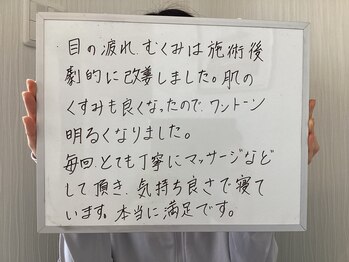 目の疲れ、むくみは施術後
劇的に改善しました。肌の
くすみも良くなったので、ワントーン
明るくなりました。
毎回とても丁寧にマッサージなど
して頂き、気持ち良さで寝て
います。本当に満足です。